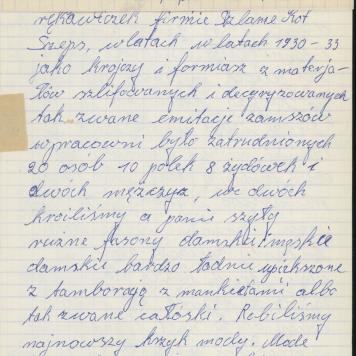 rękawiczek firmie Szlame Kot
Szeps, w latach w latach 1930-33
jako krojczy i formiasz z materja-
łów szlifowanych i decyryzowanych
tak zwane emitacje zamszów
w pracowni było zatrudnionych
20 osób 10 polek 8 żydówek i
dwóch mężczyz, we dwóch
kroiliśmy a panie szyły
rużne fasony damskie i męskie
damskie bardzo ładnie upiekszone
z tamborago z mankietami albo
tak zwane całoski. Robiliśmy
najnowszy krzyk mody. Mode